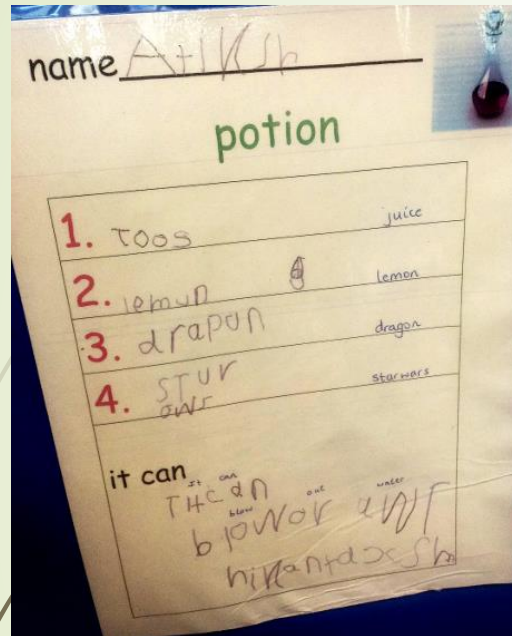 name Atiksh
potion
1. Toos juice
2. lemun lemon
3. drapon dragon
4. STUr starwars
owr
it can
it can
THcan
blow out water
blowor